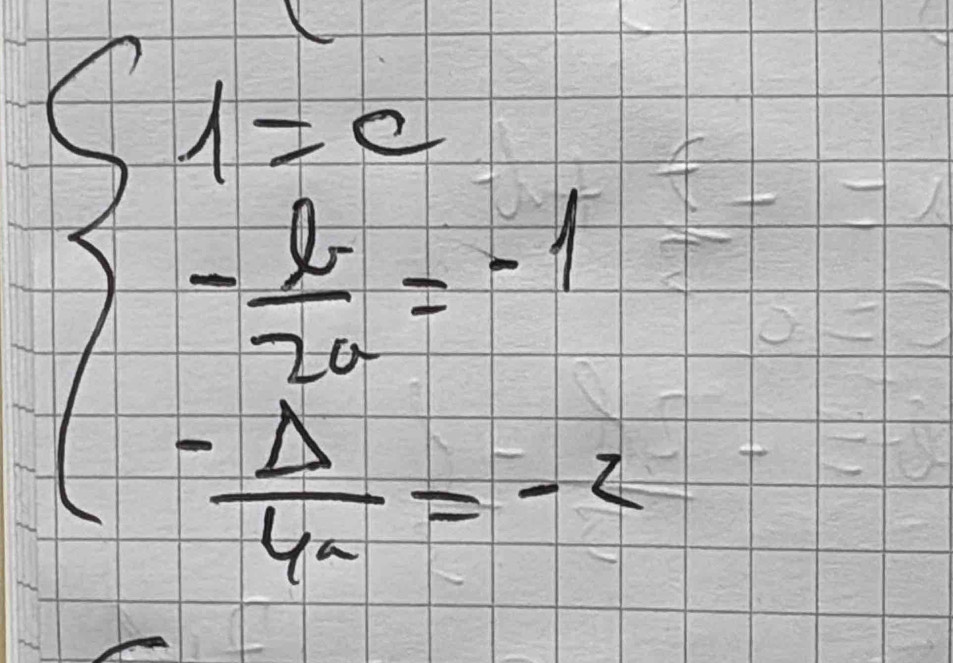 1 = c
- b/2a = -1
- Δ/4a = -2